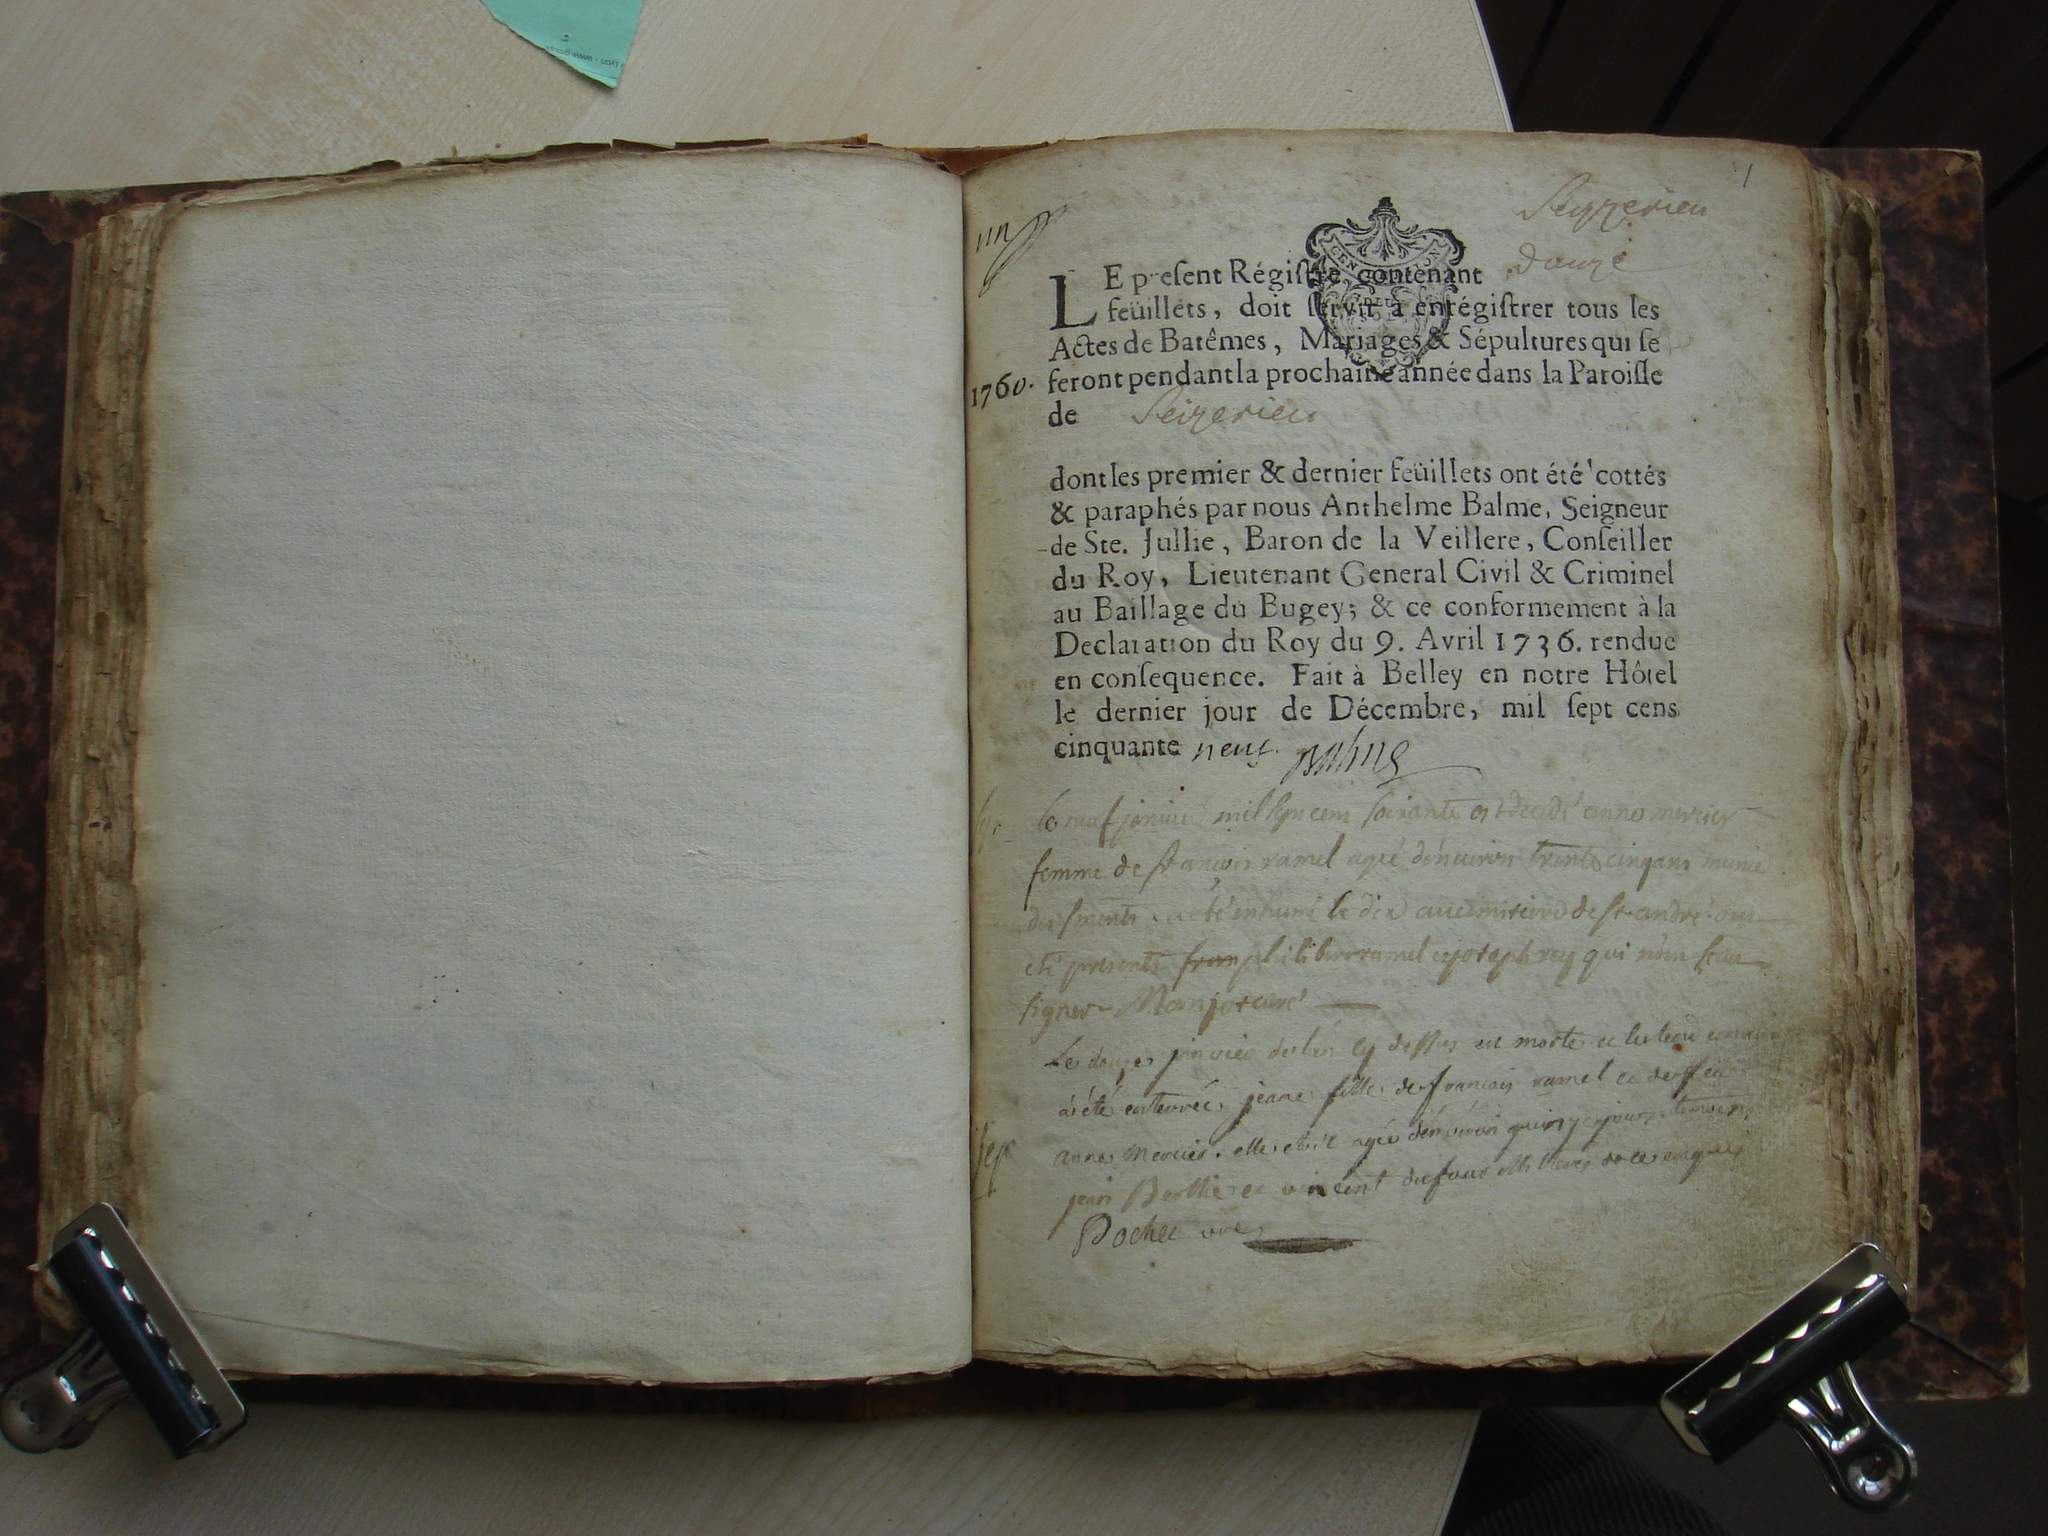 1
Seyzerieu
un
douze
LE present Régistre, contenant
feüillets, doit servir à enrégistrer tous les
Actes de Batêmes, Mariages & Sépultures qui se
1760.
feront pendant la prochaine année dans la Paroisse
de Seizerieu
dont les premier & dernier feüillets ont été cottés
& paraphés par nous Anthelme Balme, Seigneur
de Ste. Jullie, Baron de la Veillere, Conseiller
du Roy, Lieutenant General Civil & Criminel
au Baillage du Bugey; & ce conformement à la
Declaration du Roy du 9. Avril 1736. rendue
en consequence. Fait à Belley en notre Hôtel
le dernier jour de Décembre, mil sept cens
cinquante neuf. Balme
le neuf janvier mil sept cent soixante est decedé anne mercier
femme de francois ramel agée d'environ trente cinq ans munie
des a été inhumé le dix au cimitiere de st andré ont
été presents philibert ramel et joseph rey qui n'ont sceu
signer
Le douze janvier de l'an cy dessus est morte et le
a été enterrée jeane fille de francois ramel et de feue
anne mercier. elle etoit agée d'environ quinze jours temoins
jean Berthet et vincent dufour
Pochet